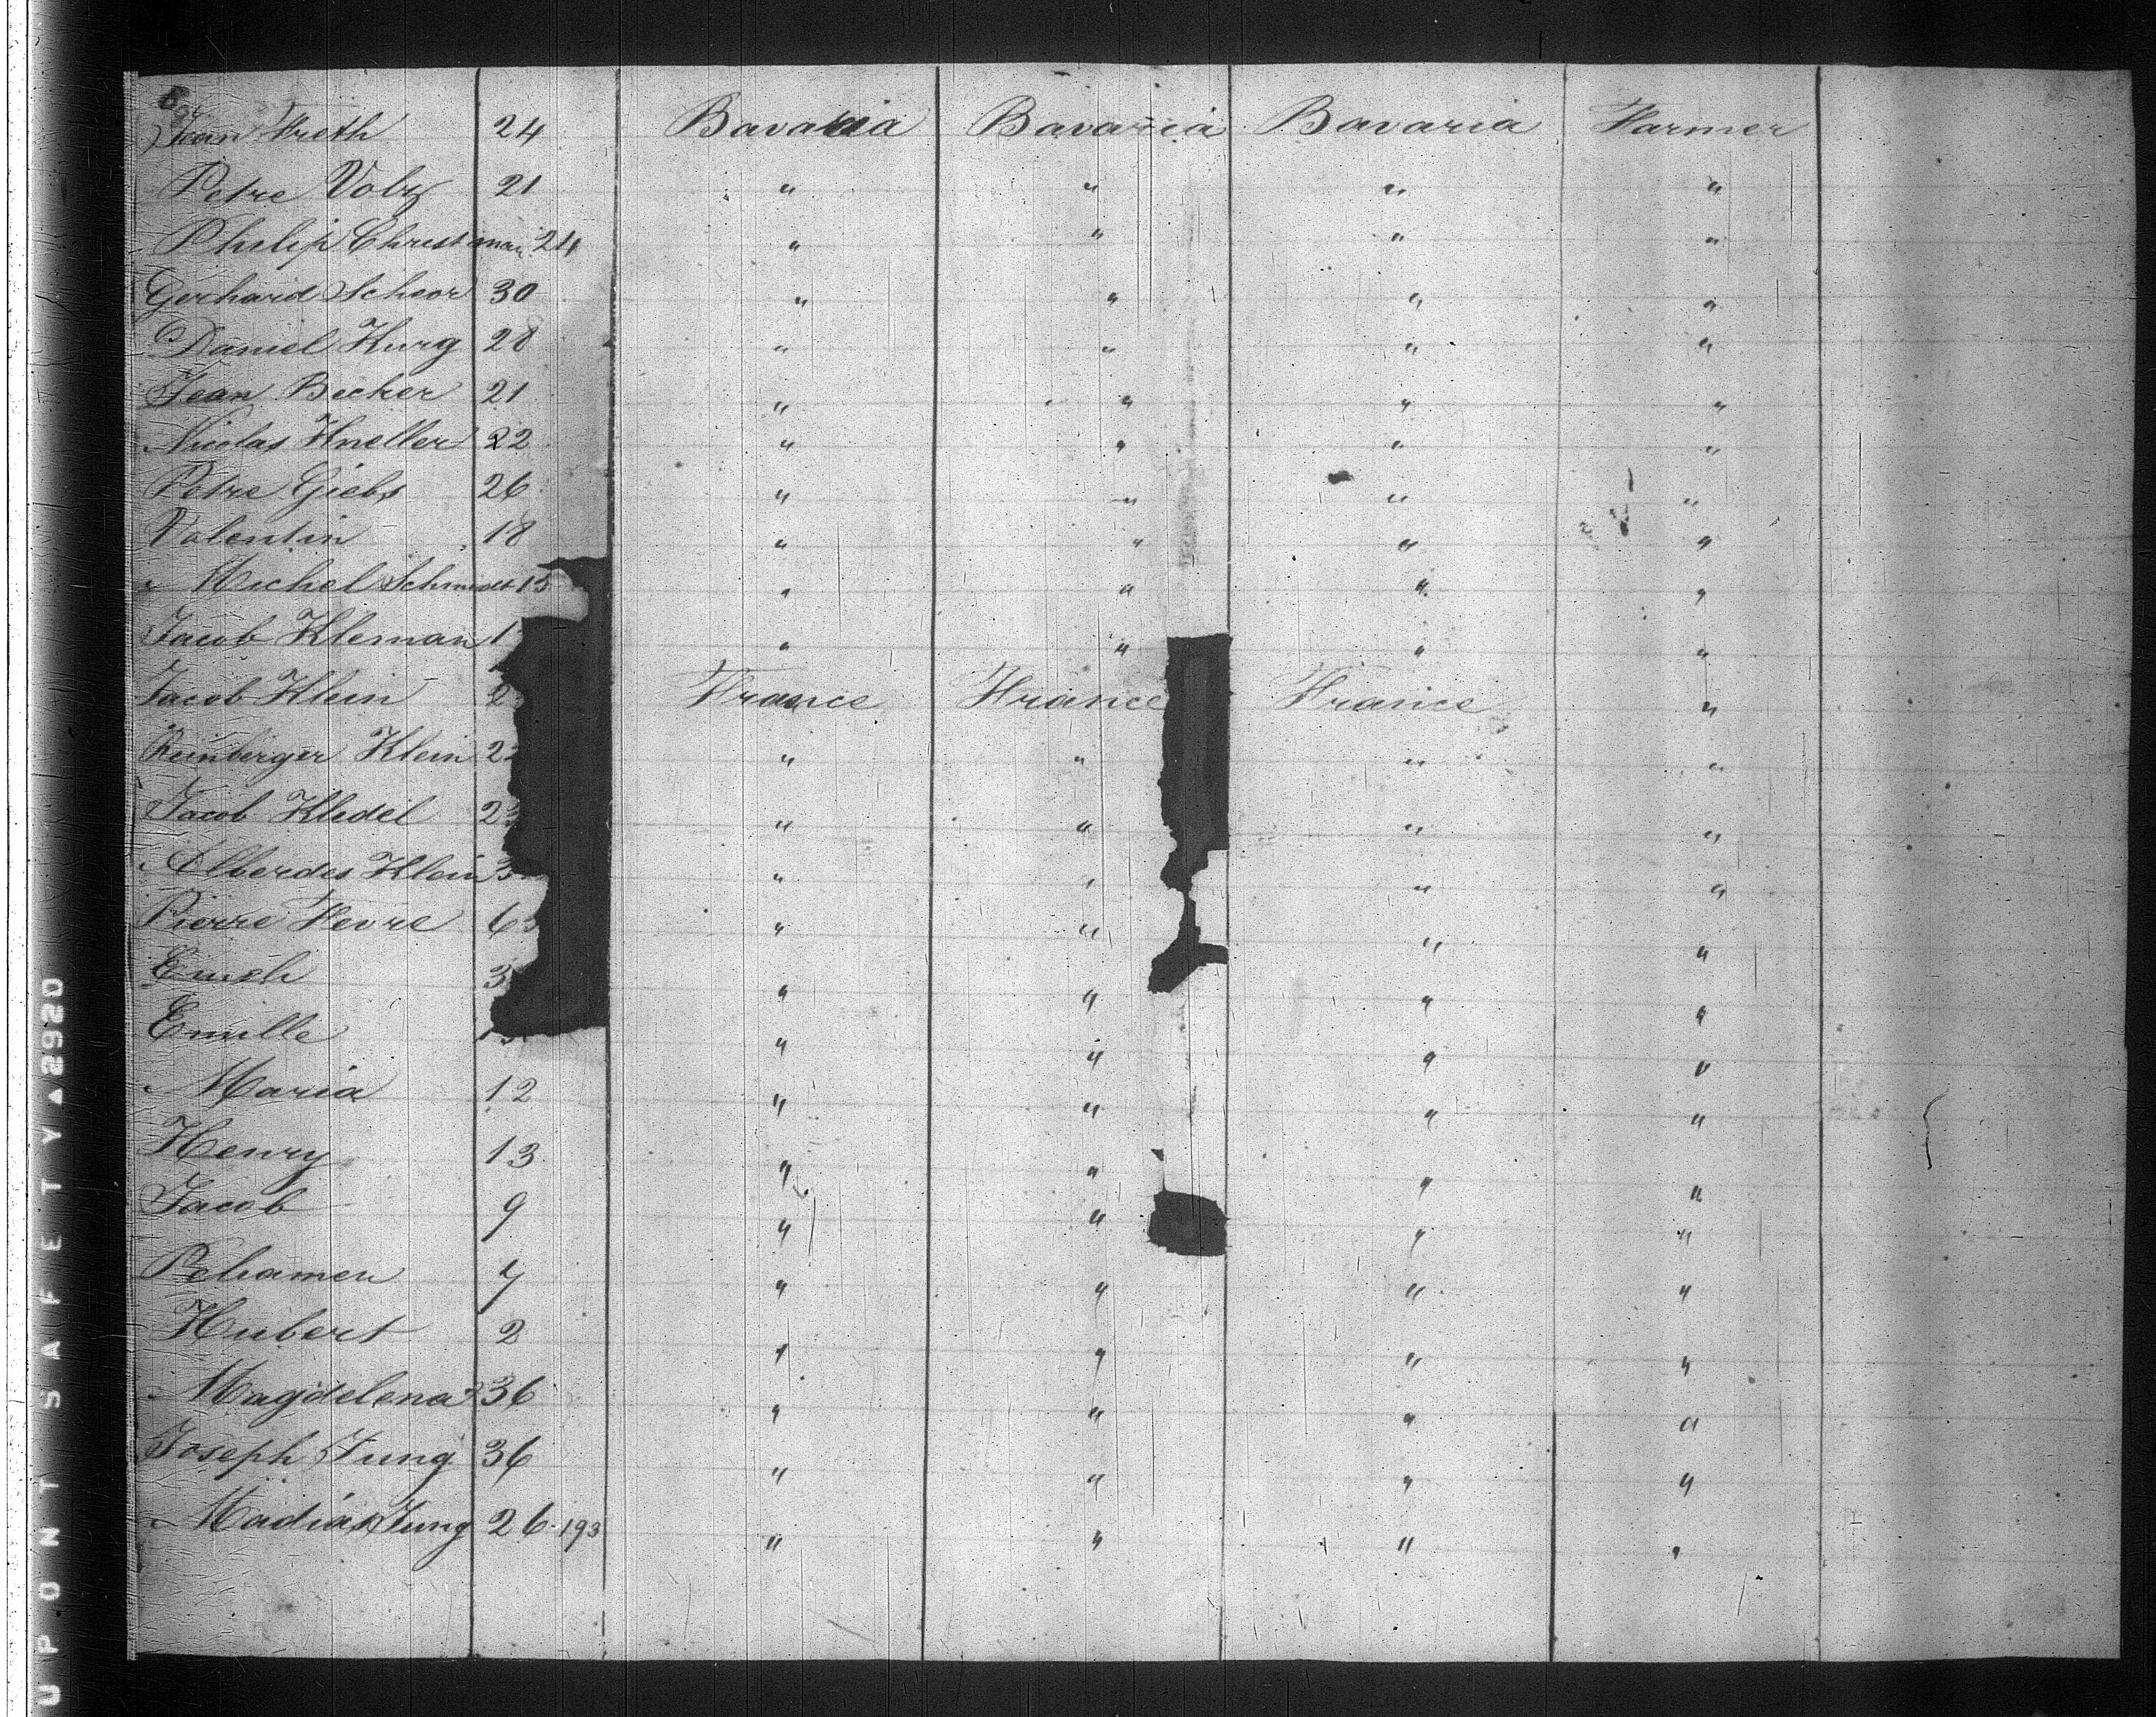 Jean Freth 24 Bavaria Bavaria Bavaria Farmer
Petre Volz 21 " " " "
Philip Christman 24 " " " "
Gerhard Schoor 30 " " " "
Daniel Kurg 28 " " " "
Jean Becker 21 " " " "
Nicolas Kneller 22 " " " "
Petre Giebs 26 " " " "
Valentin 18 " " " "
Michel Schmidt 15 " " " "
Jacob Kleman 1 " " " "
Jacob Klein 2 France France France "
Reinberger Klein 22 " " " "
Jacob Kledel 23 " " " "
Alberdes Klein 3 " " " "
Pierre Fevre 63 " " " "
3 " " " "
Emille " " " "
Maria 12 " " " "
Henry 13 " " " "
Jacob 9 " " " "
7 " " " "
Hubert 2 " " " "
Magdelena 36 " " " "
Joseph Jung 36 " " " "
Madias Jung 26 193 " " " "
UPONT SAFETY ▲ 8920